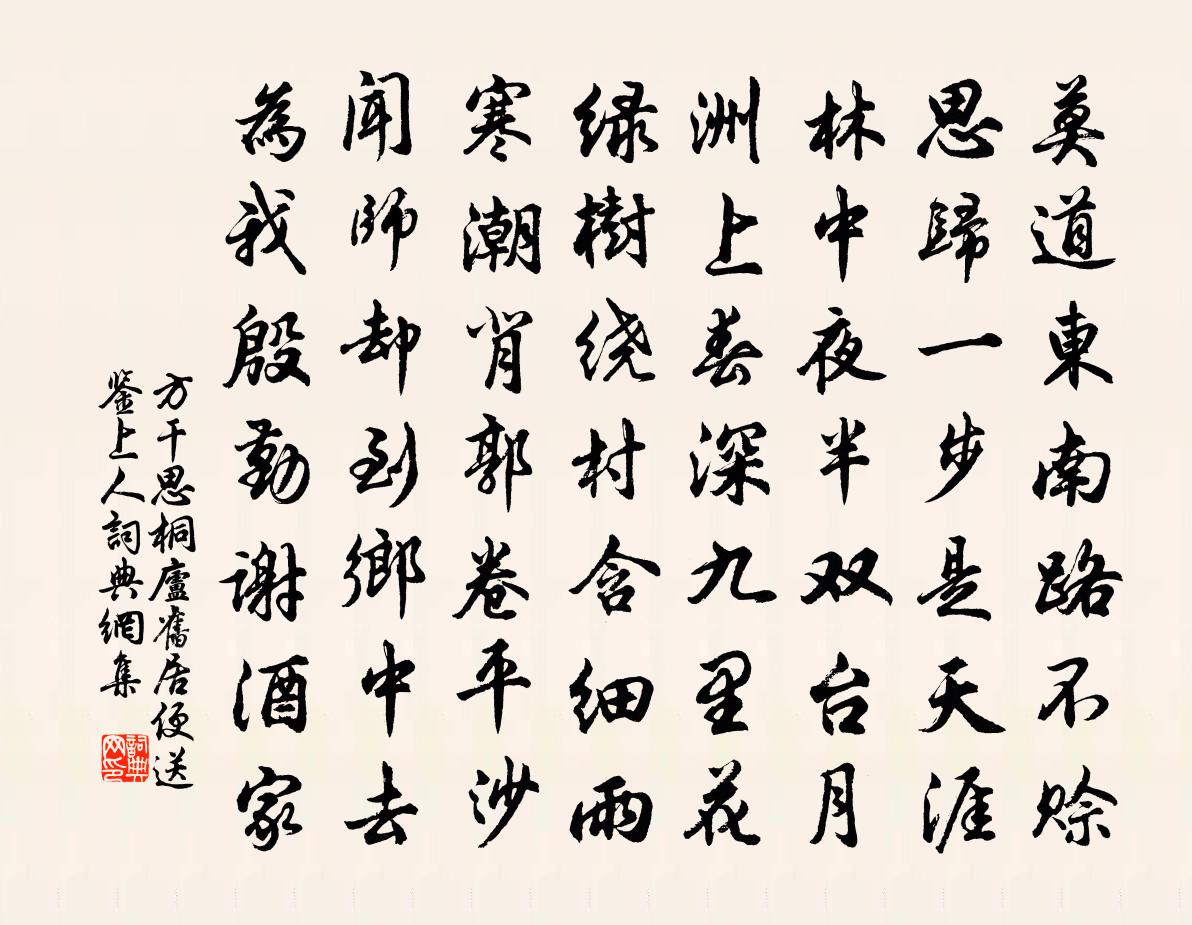 莫道東南路不赊
思歸一步是天涯
林中夜半双台月
洲上春深九里花
绿樹绕村含细雨
寒潮背郭卷平沙
闻師却到鄉中去
為我殷勤谢酒家
方干思桐廬舊居便送
鉴上人詞典網集
詞典
网印